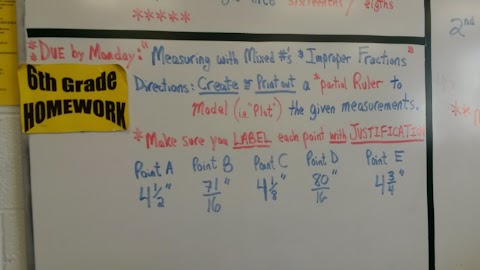 sixteenths / eigths
*****
2nd
**Due by Monday: "Measuring with Mixed #'s & Improper Fractions"
6th Grade
HOMEWORK
Directions: Create or Print out a *partial Ruler to
Model (i.e. "Plot") the given measurements.
*Make sure you LABEL each point with JUSTIFICATION
Point A Point B Point C Point D Point E
4 1/2" 71/16" 4 1/8" 80/16" 4 3/4"